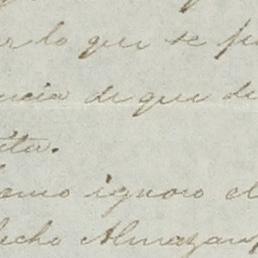 r lo que se pu
ncia de que de
ita.
Como ignoro el
dicho Almazan